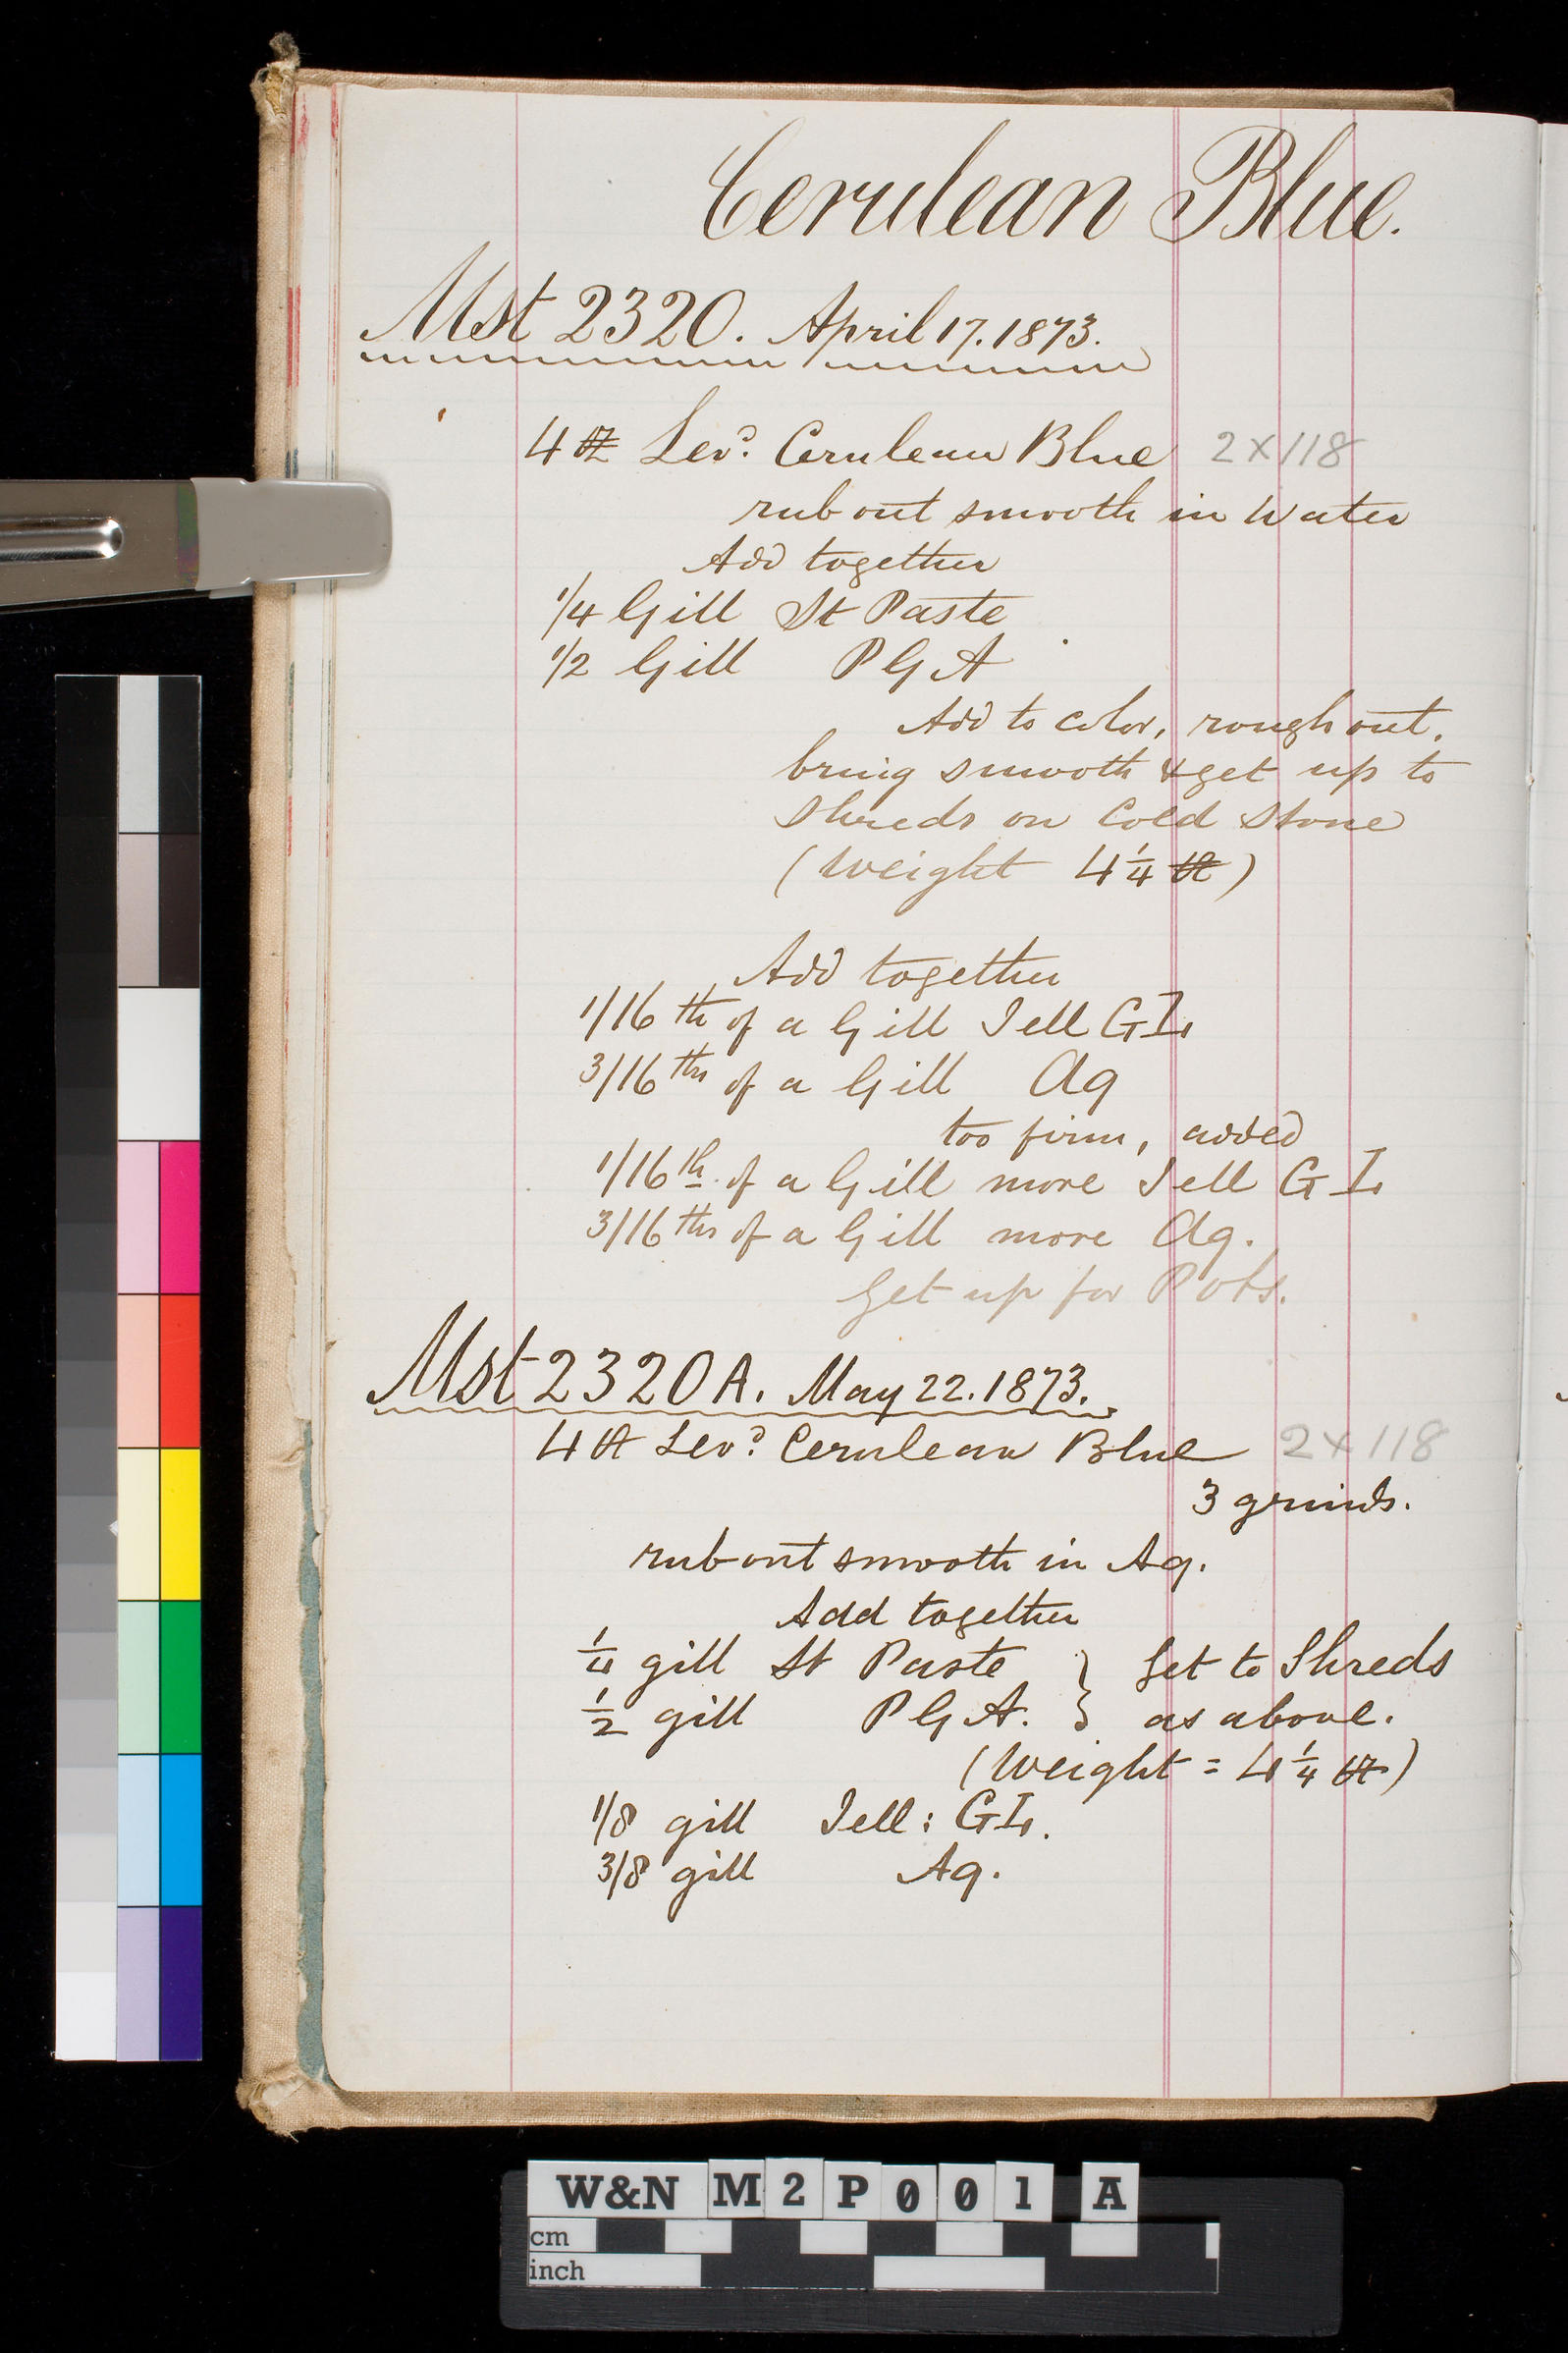 Cerulean Blue.
Mst 2320. April 17. 1873.
4 ℔ Levd. Cerulean Blue 2 x 118
rub out smooth in Water
Add together
1/4 Gill St Paste
1/2 Gill P G A
Add to color, rough out,
bring smooth & get up to
Shreds on Cold Stone
(Weight 4 1/4 ℔)
Add together
1/16th of a Gill Jell GL
3/16ths of a Gill Aq
too firm, added
1/16th of a Gill more Jell GL
3/16ths of a Gill more Aq.
Get up for Pots.
Mst 2320A. May 22. 1873.
4 ℔ Levd. Cerulean Blue 2 x 118
3 grinds.
rub out smooth in Aq.
Add together
1/4 gill St Paste } Get to Shreds
1/2 gill P G A. } as above.
(Weight = 4 1/4 ℔)
1/8 gill Jell: GL.
3/8 gill Aq.
W&N M2P001 A
cm
inch